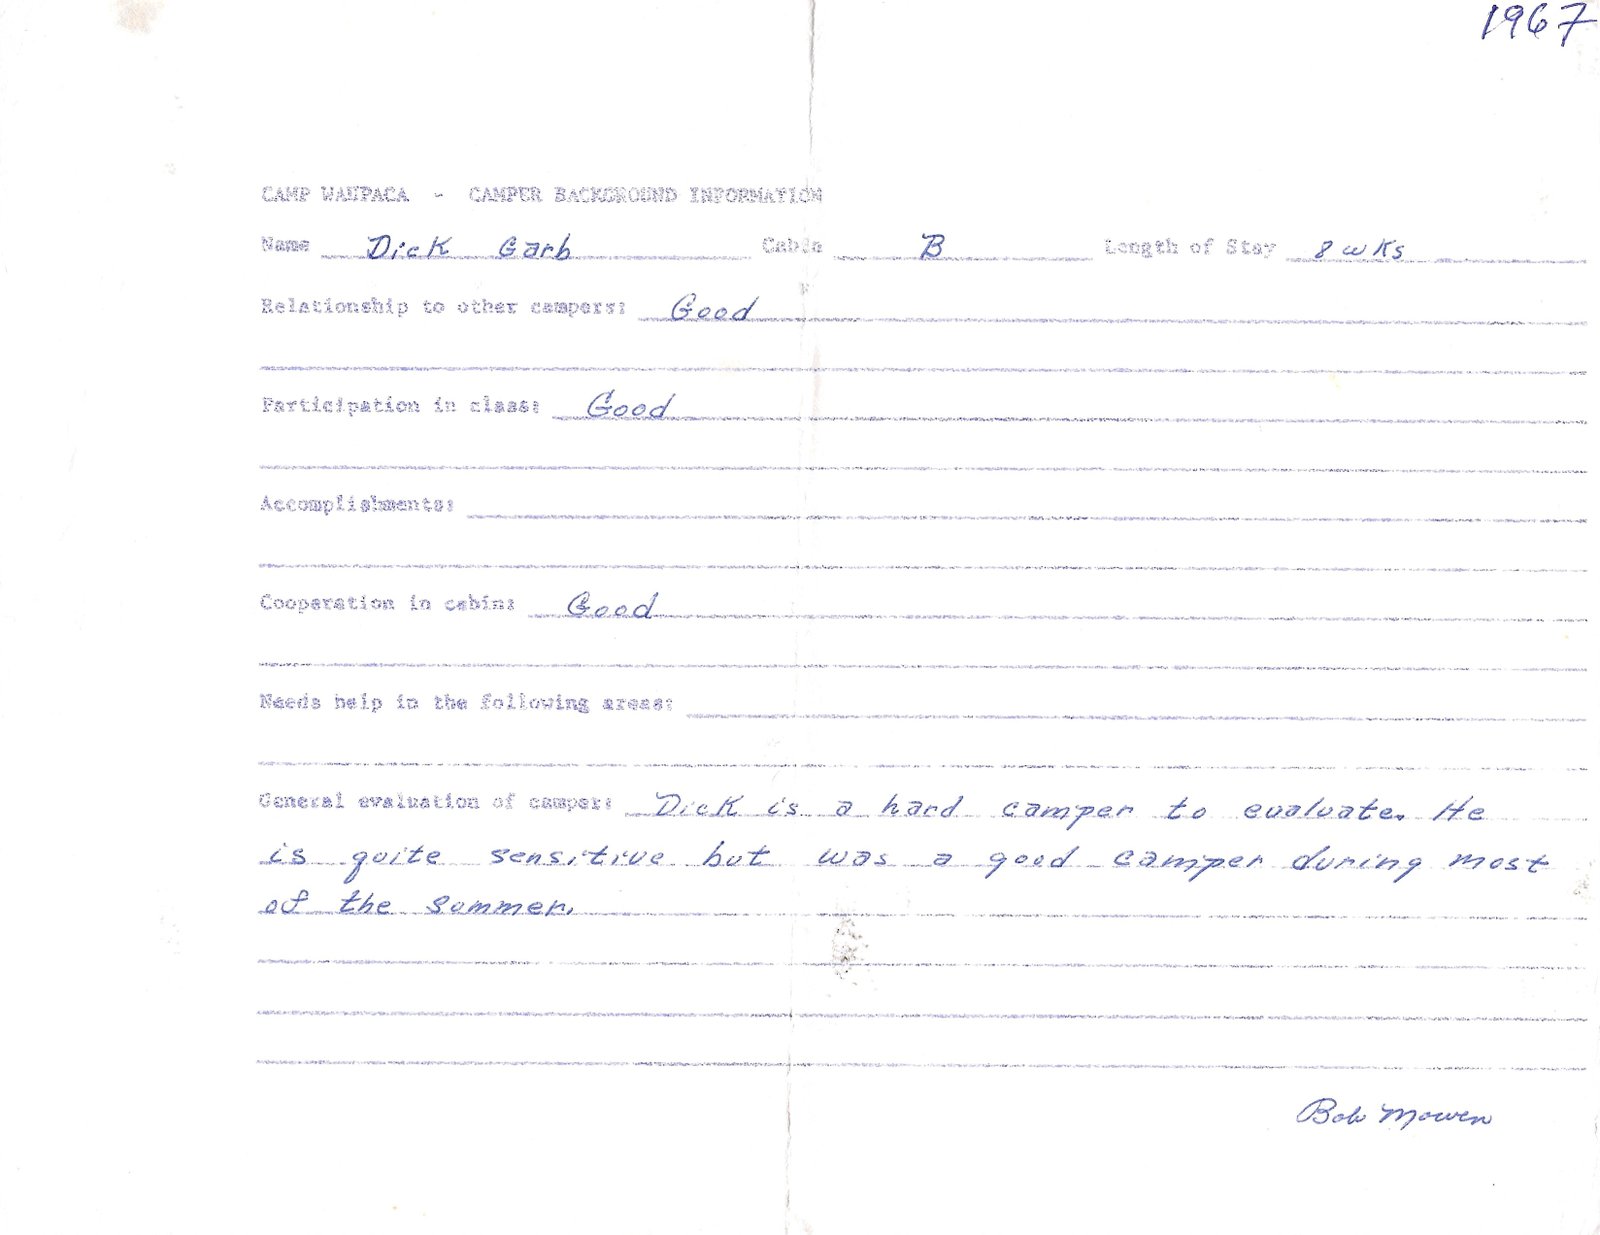 1967
CAMP WAUPACA - CAMPER BACKGROUND INFORMATION
Name Dick Garb Cabin B Length of Stay 8 wks
Relationship to other campers: Good
Participation in class: Good
Accomplishments:
Cooperation in cabin: Good
Needs help in the following areas:
General evaluation of camper: Dick is a hard camper to evaluate. He
is quite sensitive but was a good camper during most
of the summer.
Bob Mowen